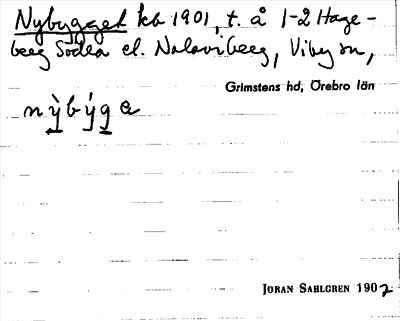 Nybygget kb 1901, t. å 1-2 Hage-
berg Södra el. Nalaviberg, Viby sn,
Grimstens hd, Örebro län
nỳbýge
JÖRAN SAHLGREN 1902